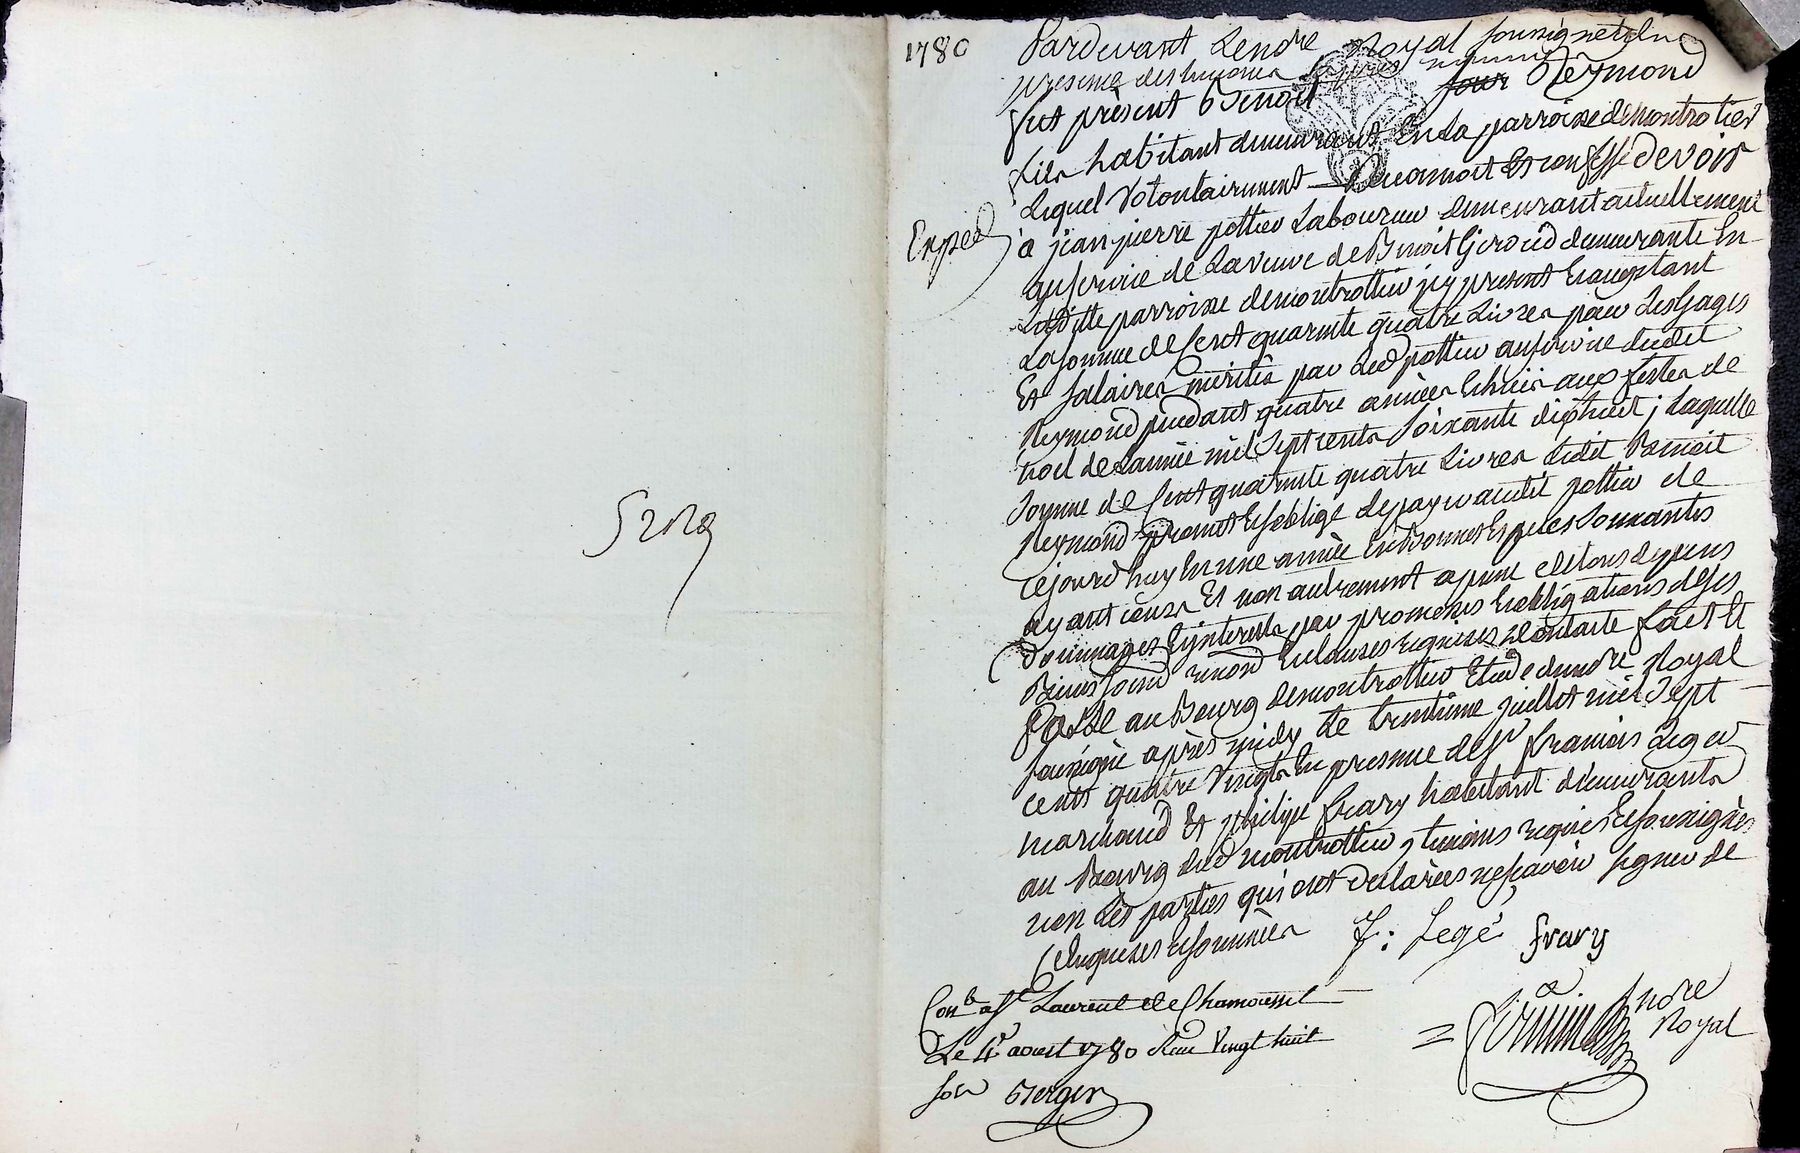 1780
Pardevant Le nore Royal soussignet Et En
presence des temoins apres nommé
fut présent Benoit Reymond
fils habitant demeurant En La parroisse de montrotier
Lequel Volontairement Reconnoit Et confesse devoir
Exped
à jean pierre pottier Laboureur demeurant actuellement
au service de La veuve de Benoit Giroud demeurante En
Laditte parroisse de montrottier icy present Et acceptant
La somme de Cent quarente quatre Livres pour Les Gages
Et Salaires mérités par Led pottier au service dudit
Reymond pendant quatre années Echuës aux festes de
noel de L'année mil Sept cents soixante dix huit ; Laquelle
somme de Cent quarente quatre Livres Ledit Benoit
Reymond promet Et s'oblige de payer audit pottier de
cejourd'huy En une année En Bonnes Especes sonnantes
ayant cours Et non autrement a peine de tous depens
dommages Et interests par promesses Et obligations de ses
Biens soumd renond Et clauses requises dont acte fait Et
Passé au Bourg de montrottier Etude du nore Royal
soussigné après midy Le trentieme juillet mil Sept
cents quatre Vingts En presence de sr francois Leger
marchand Et philipe frary habitant demeurants
au Bourg dud montrottier temoins requis Et soussignés
non Les parties qui ont Declarées ne scavoir signer de
ce Enquises Et sommées
F: Legé frary
nore Royal
Conlé a St Laurent de Chamousset
Le 4e aoust 1780 Recu Vingt huit
sols Berger